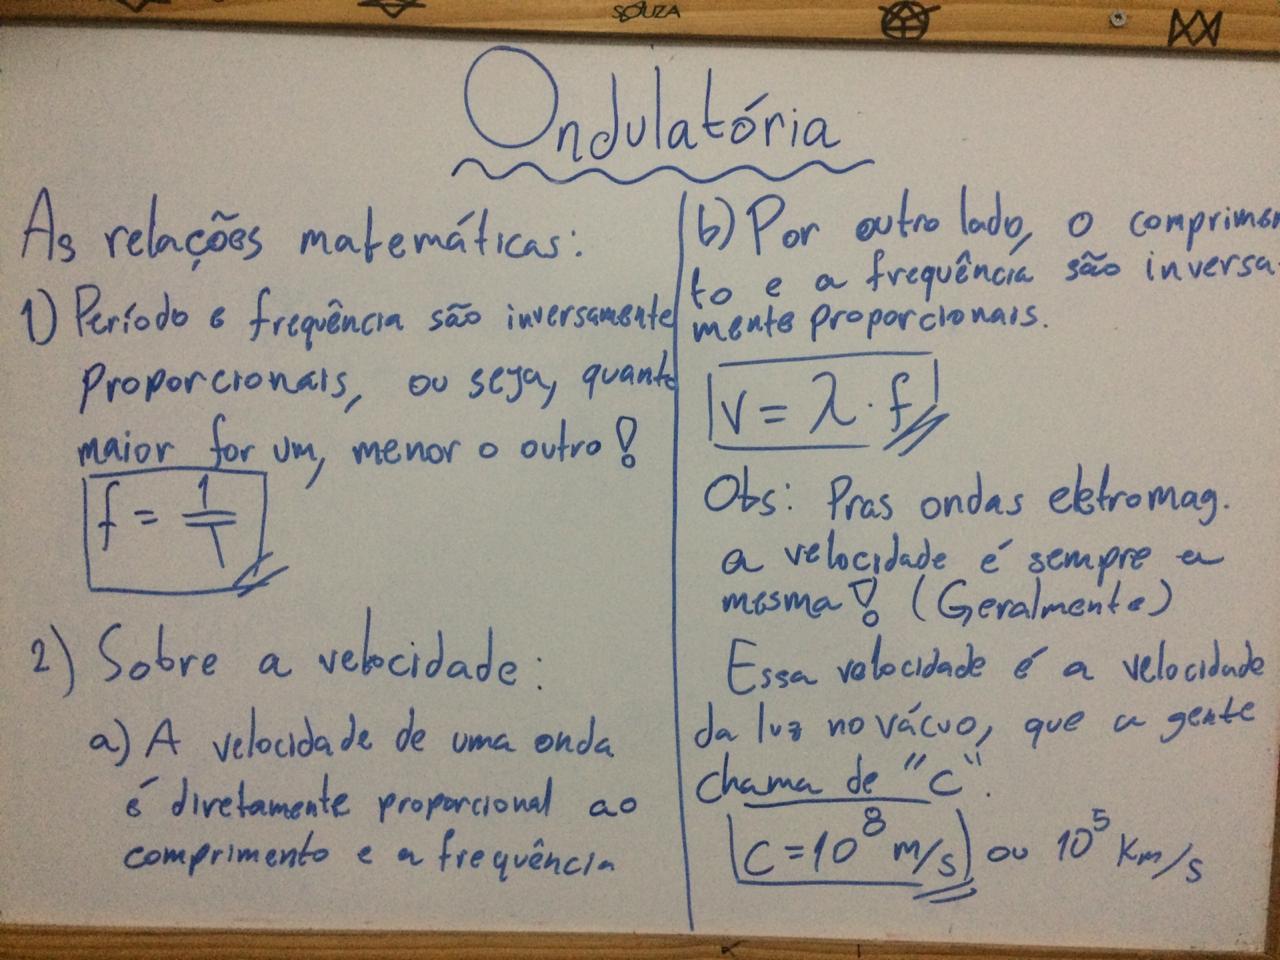 SOUZA
Ondulatória
As relações matemáticas:
1) Período e frequência são inversamente
proporcionais, ou seja, quanto
maior for um, menor o outro!
f = 1/T
2) Sobre a velocidade:
a) A velocidade de uma onda
é diretamente proporcional ao
comprimento e a frequência
b) Por outro lado, o comprimen
to e a frequência são inversa-
mente proporcionais.
V = λ · f
Obs: Pras ondas eletromag.
a velocidade é sempre a
mesma! (Geralmente)
Essa velocidade é a velocidade
da luz no vácuo, que a gente
chama de "C".
C = 10⁸ m/s ou 10⁵ Km/s